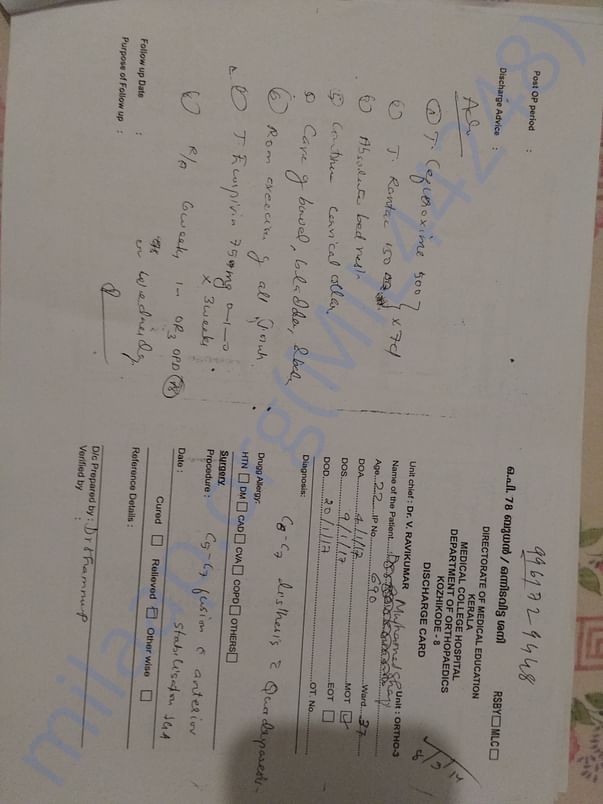 996172 9448
ഒ.പി. 78 ബുധൻ / ഒന്നിടവിട്ട ശനി
RSBY MLC
DIRECTORATE OF MEDICAL EDUCATION
KERALA
MEDICAL COLLEGE HOSPITAL
DEPARTMENT OF ORTHOPAEDICS
KOZHIKODE - 8
DISCHARGE CARD
Unit chief : Dr. V. RAVIKUMAR Unit : ORTHO-3
Name of the Patient Muhamed
Age 22 IP No. 690 Ward 37
DOA 4/1/17 MOT
DOS 9/1/17 EOT
DOD 20/1/17 OT. No.
Diagnosis: C6-C7 listhesis c Quadriparesis
Drugg Allergy:
HTN DM CAD CVA COPD OTHERS
Surgery
Procedure : C5-C7 fusion c anterior
stabilisation
Date :
Cured Relieved Other wise
Reference Details :
D/c Prepared by : Dr
Verified by :
Post OP period :
Discharge Advice :
Adv
T. Cefuroxime 500
T. Rantac 150 x 7d
Absolute bed rest
Continue cervical collar
Care of bowel, bladder, back
ROM exercise of all joints
T. Ecospirin 75mg 0-1-0
x 3 weeks
R/A 6 weeks in OR3 OPD 78
on Wednesday
Follow up Date :
Purpose of Follow up :
milaap.org(MIL44248)